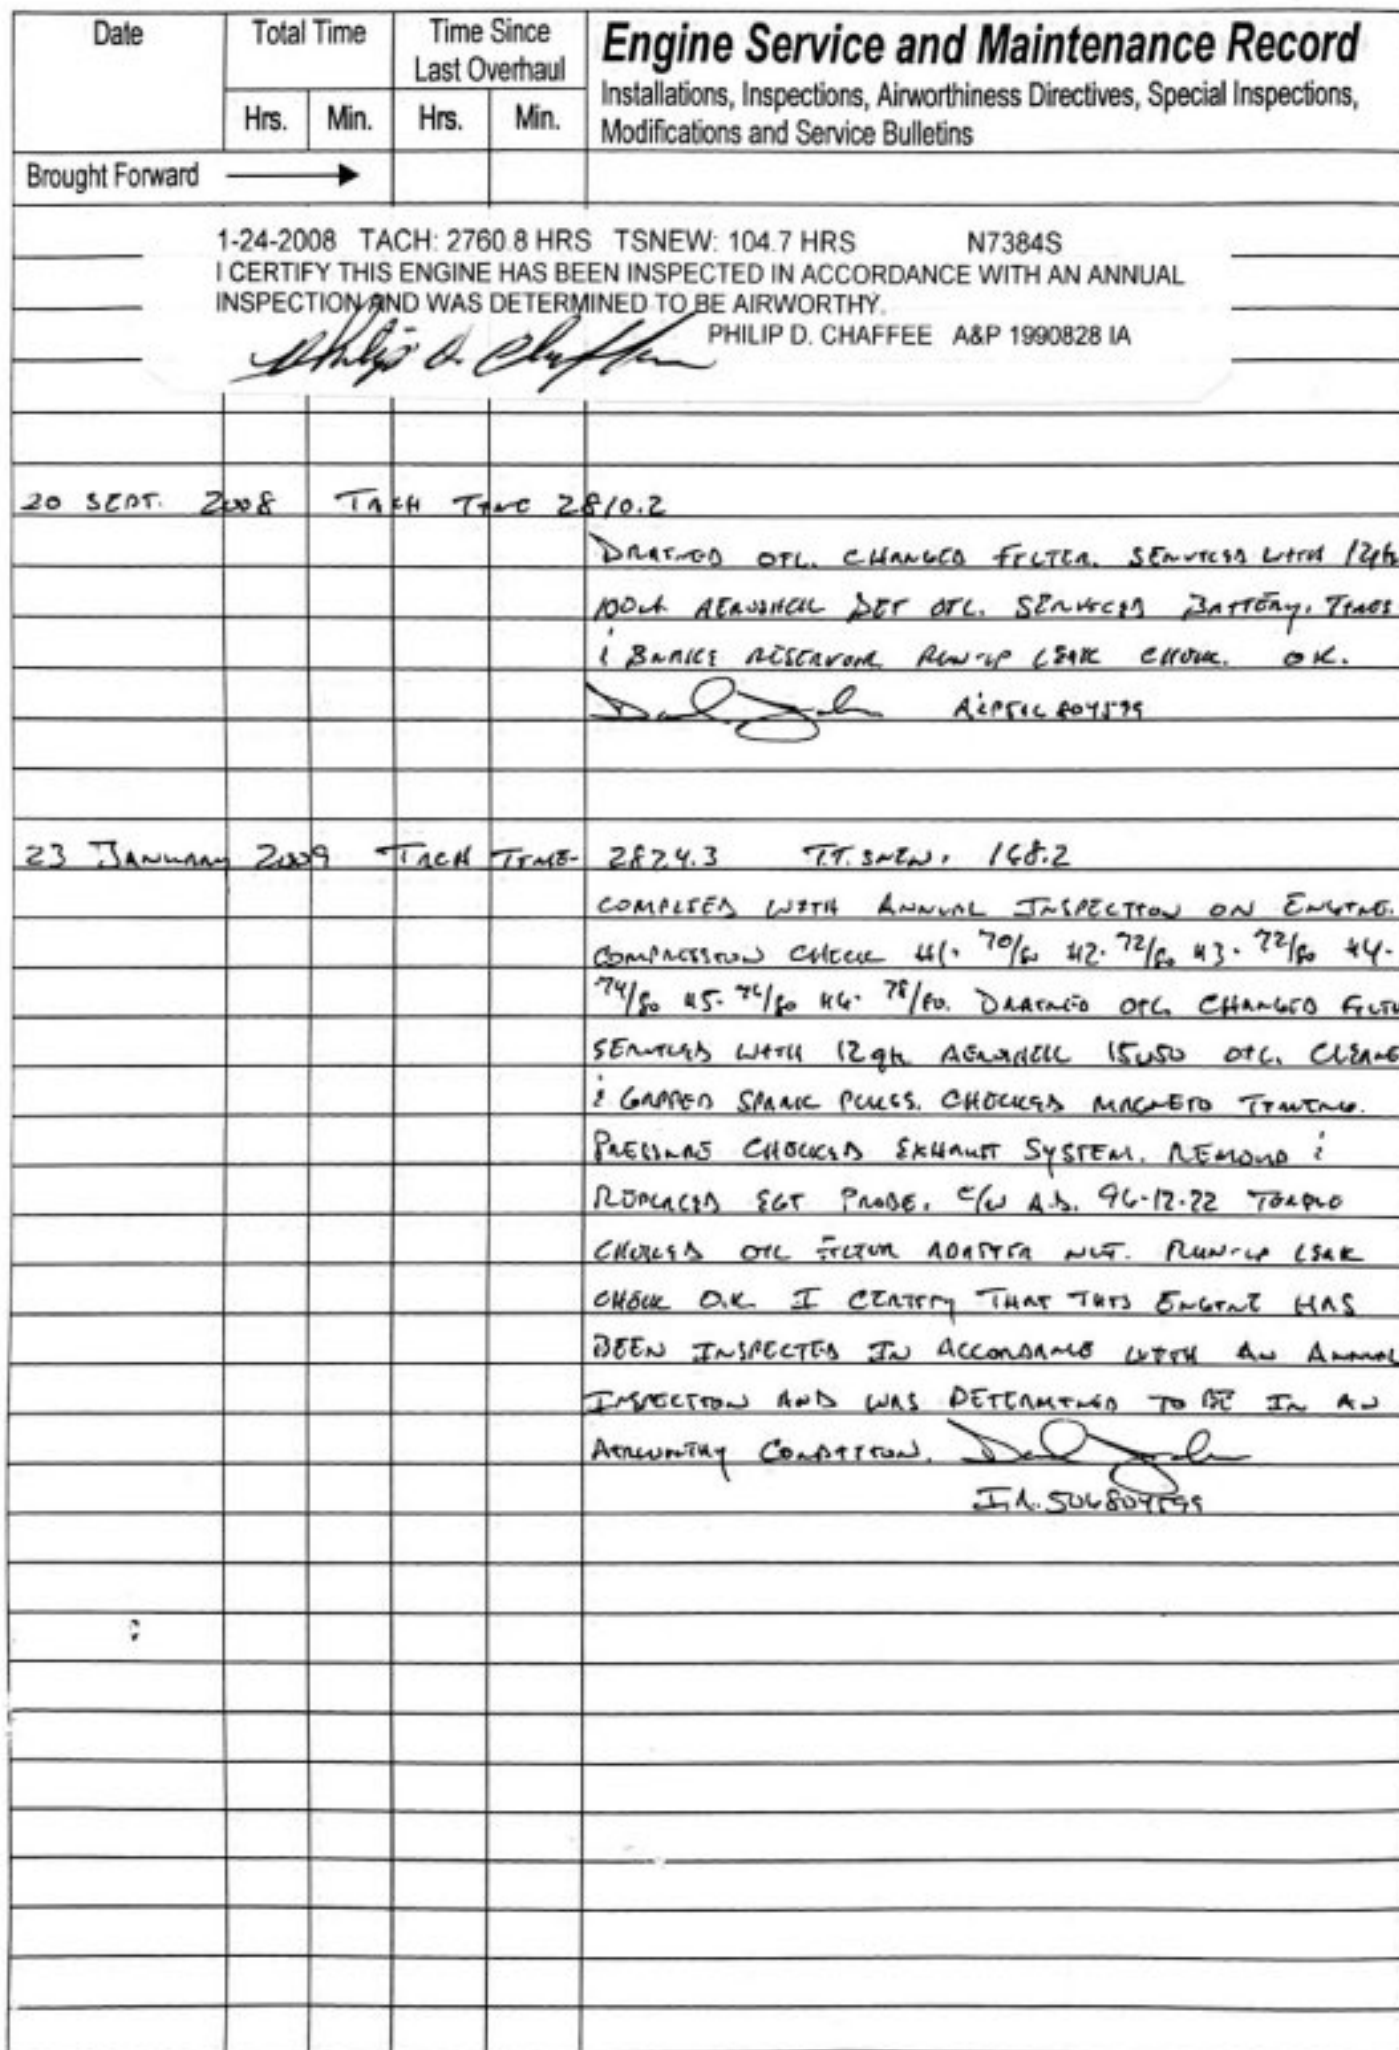 Date
Total Time
Time Since
Last Overhaul
Hrs. Min. Hrs. Min.
Engine Service and Maintenance Record
Installations, Inspections, Airworthiness Directives, Special Inspections,
Modifications and Service Bulletins
Brought Forward
1-24-2008 TACH: 2760.8 HRS TSNEW: 104.7 HRS N7384S
I CERTIFY THIS ENGINE HAS BEEN INSPECTED IN ACCORDANCE WITH AN ANNUAL
INSPECTION AND WAS DETERMINED TO BE AIRWORTHY.
Philip D. Chaffee PHILIP D. CHAFFEE A&P 1990828 IA
20 SEPT. 2008 TACH TIME 2810.2
DRAINED OIL. CHANGED FILTER. SERVICED WITH 12qts
100wt AEROSHELL DET OIL. SERVICED BATTERY, TIRES
& BRAKE RESERVOIR RUN-UP LEAK CHECK. OK.
23 JANUARY 2009 TACH TIME- 2824.3 T.T. SNEW. 168.2
COMPLIED WITH ANNUAL INSPECTION ON ENGINE.
COMPRESSION CHECK #1- 70/80 #2- 72/80 #3- 72/80 #4-
74/80 #5- 76/80 #6- 78/80. DRAINED OIL CHANGED FILTE
SERVICED WITH 12qts AEROSHELL 15W50 OIL. CLEANE
& GAPPED SPARK PLUGS. CHECKED MAGNETO TIMING.
PRESSURE CHECKED EXHAUST SYSTEM. REMOVED &
REPLACED EGT PROBE. C/W A.D. 96-12-22 TORQUE
CHECKED OIL FILTER ADAPTER NUT. RUN-UP LEAK
CHECK O.K. I CERTIFY THAT THIS ENGINE HAS
BEEN INSPECTED IN ACCORDANCE WITH AN ANNUAL
INSPECTION AND WAS DETERMINED TO BE IN AN
AIRWORTHY CONDITION.
I.A.